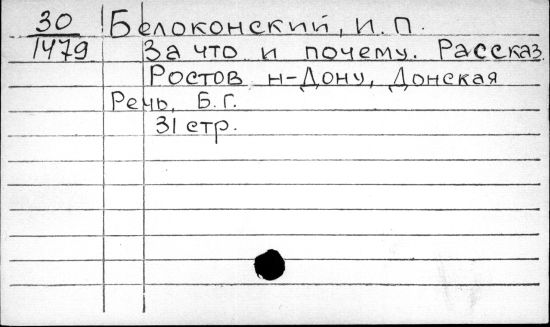 30 Белоконский, И. П.
1479 За что и почему. Рассказ.
Ростов н-Дону, Донская
Речь, Б. г.
31 стр.